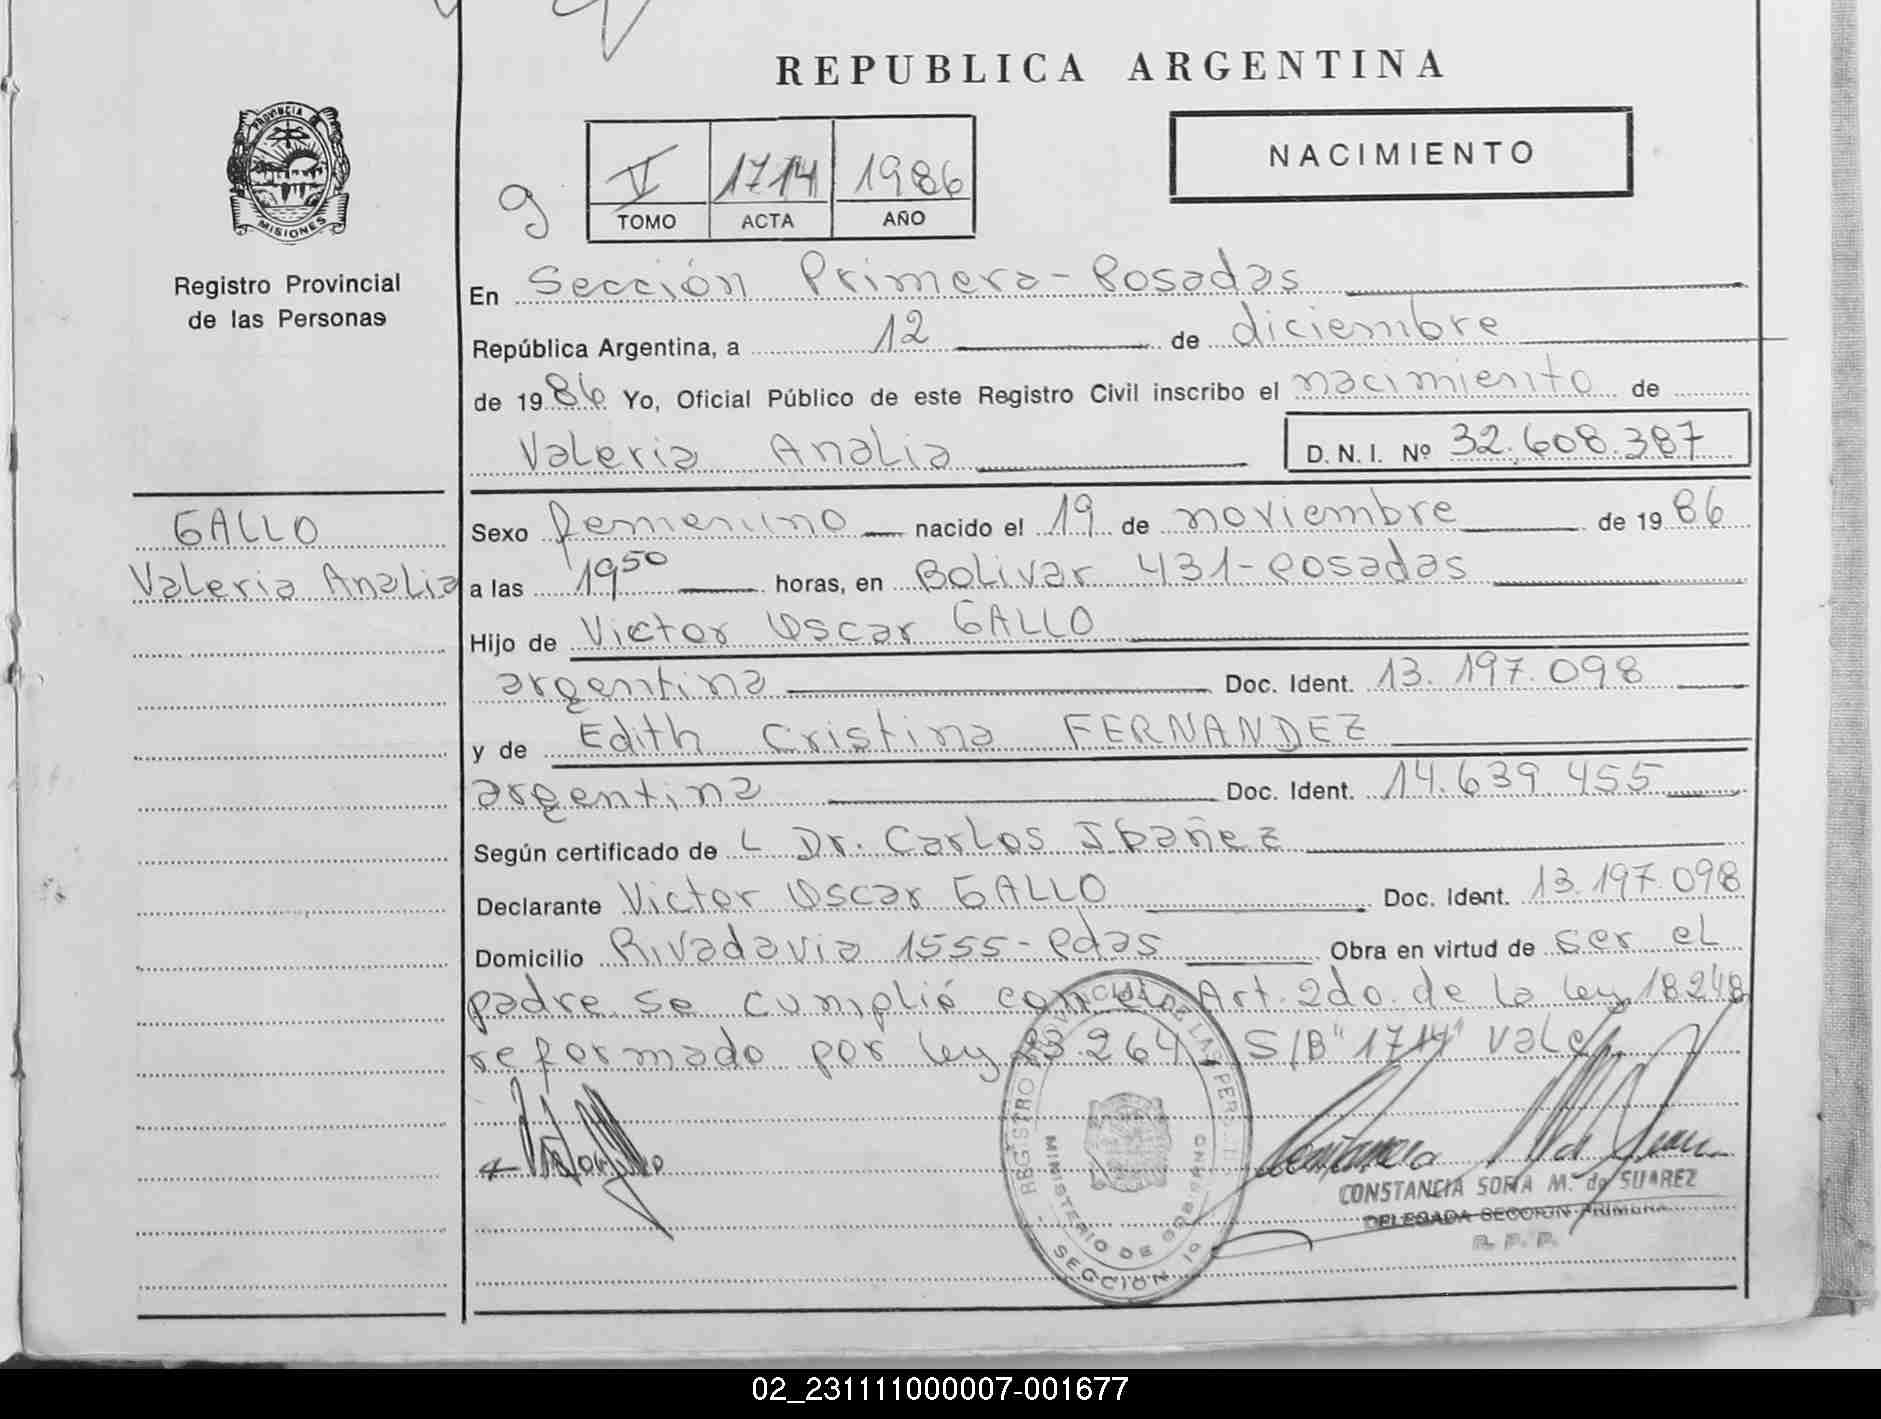 REPUBLICA ARGENTINA
PROVINCIA DE
MISIONES
Registro Provincial
de las Personas
GALLO
Valeria Analia
g
V 1714 1986
TOMO ACTA AÑO
NACIMIENTO
En Sección Primera - Posadas
República Argentina, a 12 de diciembre
de 1986 Yo, Oficial Público de este Registro Civil inscribo el nacimiento de
Valeria Analia D. N. I. Nº 32.608.387
Sexo femenino nacido el 19 de noviembre de 1986
a las 19 50 horas, en Bolivar 431 - Posadas
Hijo de Victor Oscar GALLO
argentina Doc. Ident. 13.197.098
y de Edith Cristina FERNANDEZ
argentina Doc. Ident. 14.639.455
Según certificado de L Dr. Carlos Ibañez
Declarante Victor Oscar GALLO Doc. Ident. 13.197.098
Domicilio Rivadavia 1555 - Pdas Obra en virtud de ser el
padre se cumplió con el Art. 2do. de la ley 18248
reformado por ley 23.264. S/B "1714" Vale
REGISTRO PROVINCIAL DE LAS PERS
MINISTERIO DE GOBIERNO
SECCION 1ª
CONSTANCIA SOFIA M. de SUAREZ
DELEGADA SECCION PRIMERA
R. P. P.
02_231111000007-001677